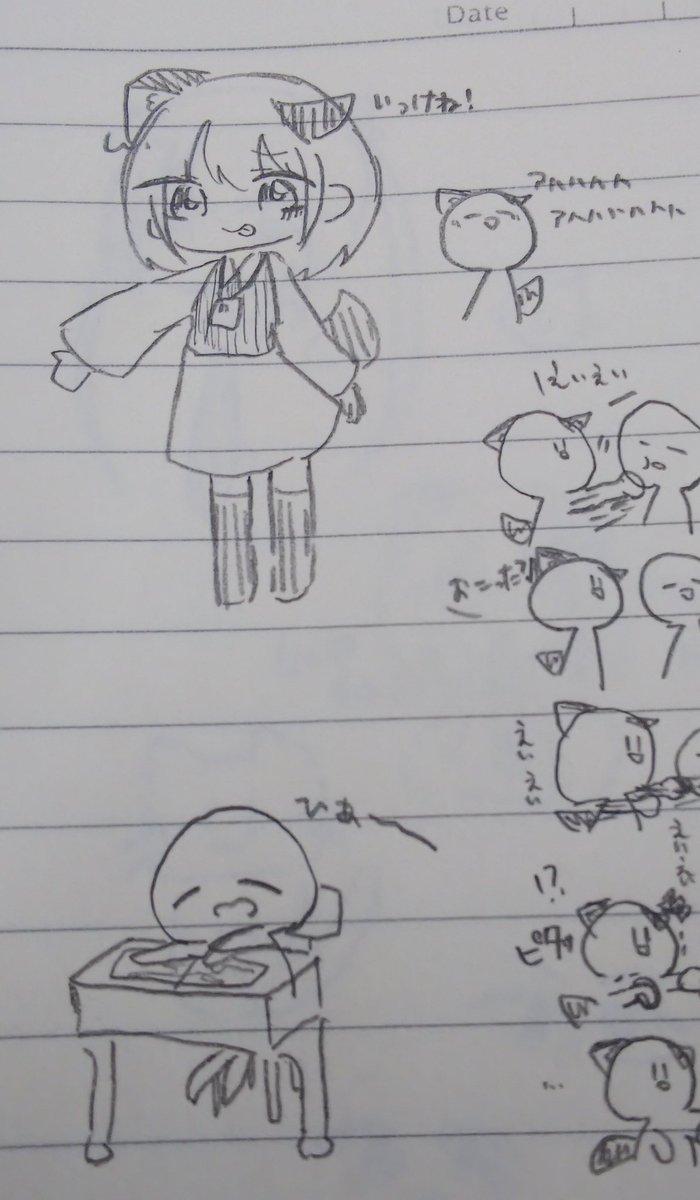 Date
いっけね!
アハハハハ
アハハハハハハ
ばぇいえい
おこった?
えいえい
えい
ひあー
!?
ピタッ
…